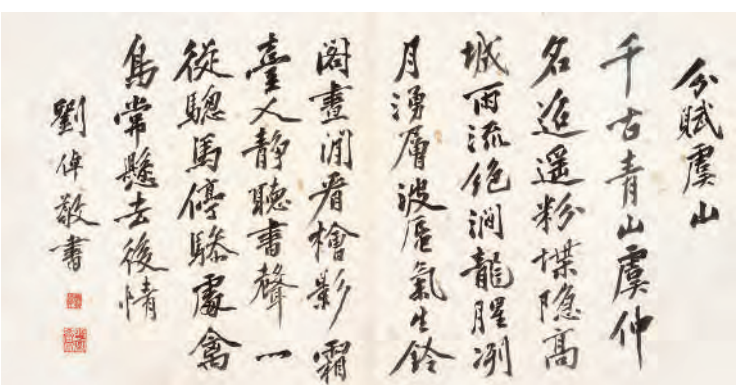 分賦虞山
千古青山虞仲
名迢遥粉堞隐高
城雨流絶澗龍腥冽
月湧層波蜃氣生鈴
閣晝閒看檜影霜
臺人静聽書聲一
從驄馬停驂處禽
鳥常懸去後情
劉倬敬書